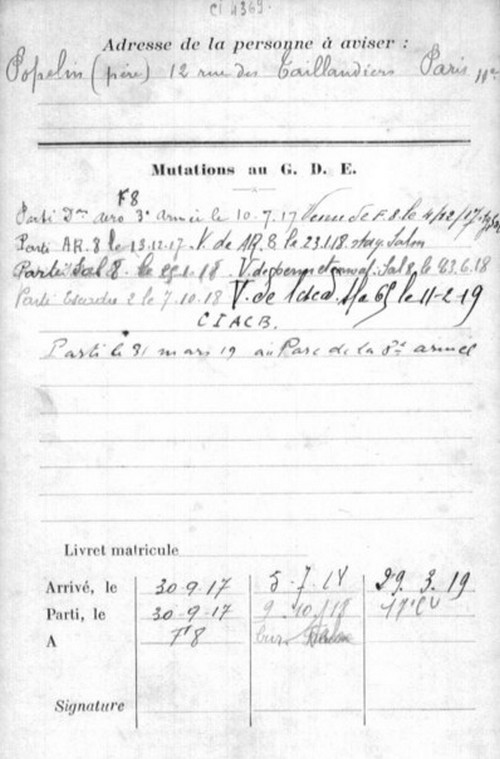 CI 4369.
Adresse de la personne à aviser :
Popelin (père) 12 rue des Taillandiers Paris 11e
Mutations au G. D. E.
F8
Parti Don aéro 3e Armée le 10.7.17 Venu de F.8 le 4/12/17
Parti AR.8 le 13.12.17. V. de AR.8 le 23.1.18 Salm
Parti Sal 8. le 18 V. de perm et conval. Sal 8 le 23.6.18
Parti Escadre 2 le 7.10.18 V. de le 11-2-19
CIACB.
Parti le 31 mars 19 au Parc de la 8me armée
Livret matricule
Arrivé, le 30-9-17 5-7-18 29.3.19
Parti, le 30-9-17 9.10/18
A F8
Signature